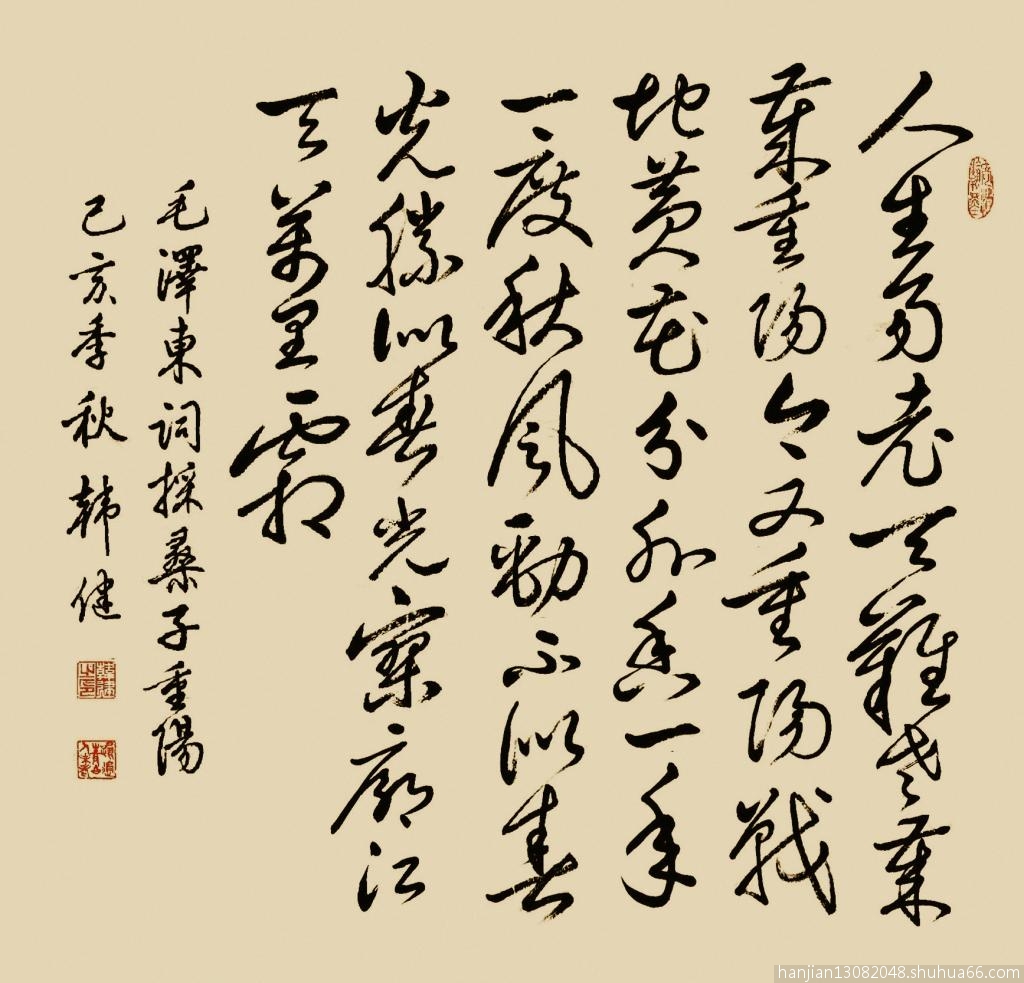 人生易老天難老歲
歲重陽今又重陽戰
地黃花分外香一年
一度秋風勁不似春
光勝似春光寥廓江
天萬里霜
毛澤東詞採桑子重陽
己亥季秋韩健
hanjian13082048.shuhua66.com